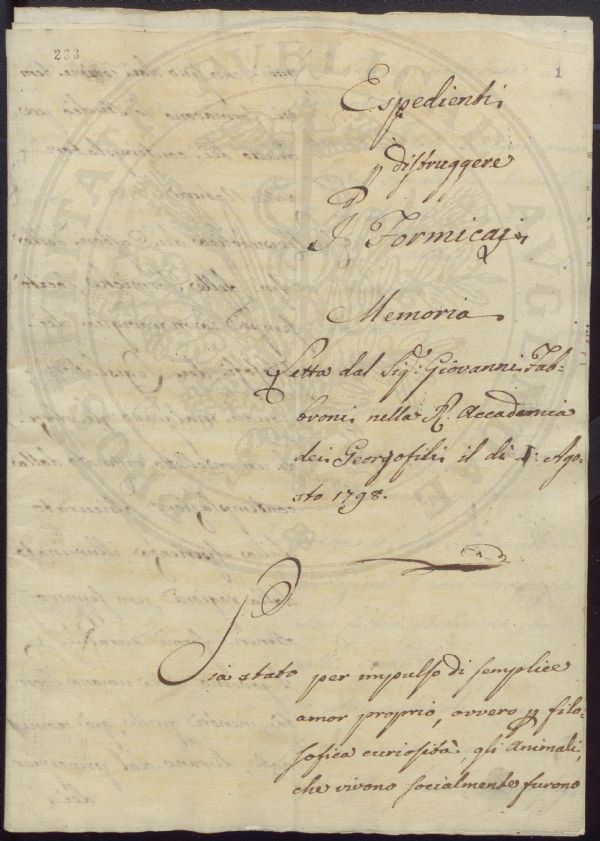 233
1
Espedienti
p distruggere
I Formicaj
Memoria
Letta dal Sigr: Giovanni Fab-
broni nella Rl. Accademia
dei Georgofili il dì : Ago-
sto 1798.
Sia stato per impulso di semplice
amor proprio, ovvero p filo-
sofica curiosità, gli Animali,
che vivono socialmente furono
PROSPERITATI PVBLICAE AVGENDAE